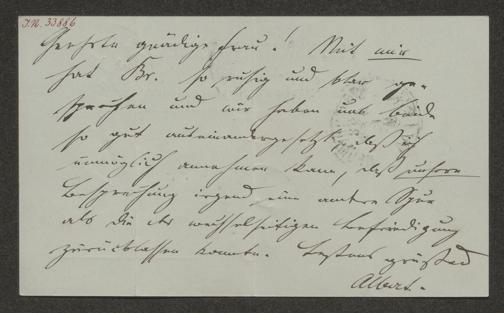 I.N. 33886
Geehrte gnädige Frau! Mit mir
hat Br. so ruhig und klar ge-
sprochen und wir haben uns beide
so gut auseinandergesetzt, daß ich
unmöglich annehmen kann, daß unsere
Besprechung irgend eine andere Spur
als die der wechselseitigen Befriedigung
zurücklassen konnte. Bestens grüßend
Albert.